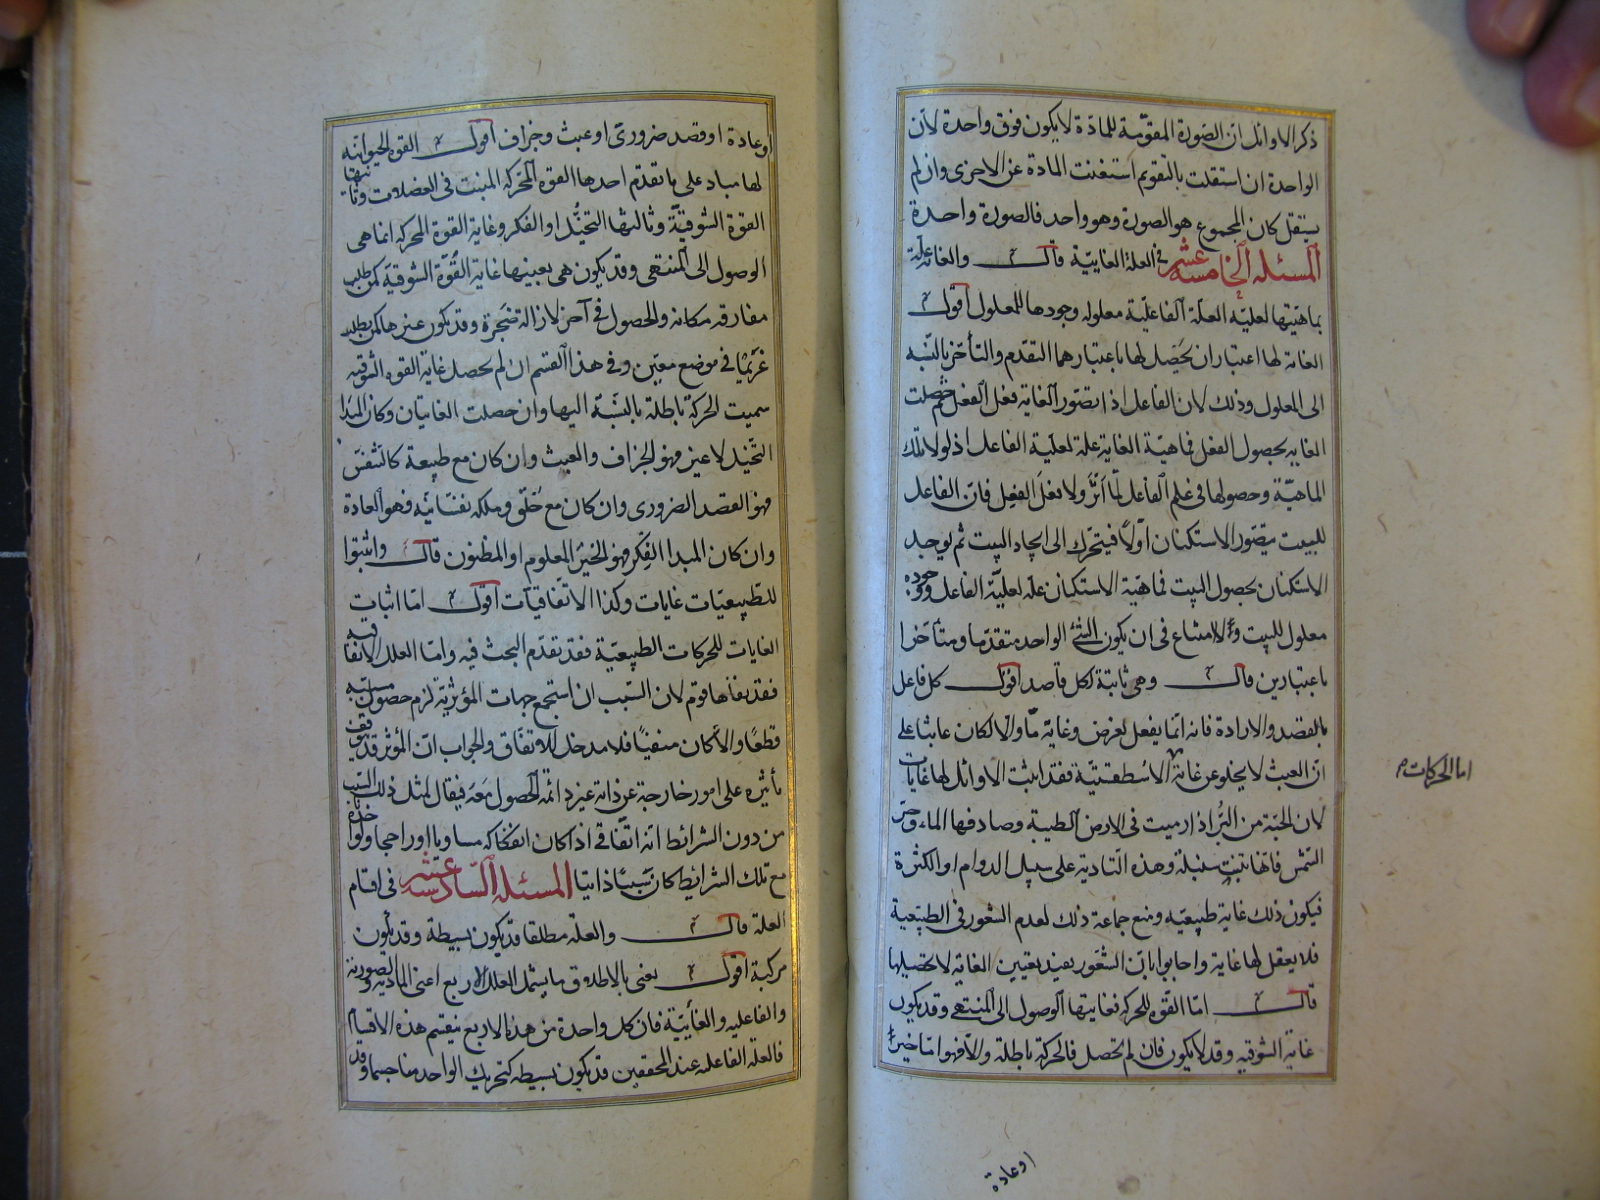 ذكر الاوائل انّ الصّورة المقوّمة للمادّة لا يكون فوق واحدة لأن
الواحدة ان استقلت بالتقويم استغنت المادة عن الاخرى وان لم
يستقل كان المجموع هو الصورة وهو واحد فالصورة واحدة
المسئله الخامسه عشر في العلة الغاييّة قال والغاية علة
بماهيّتها لعليّه العلّة الفاعليّة معلوله وجودها للمعلول اقول
الغاية لها اعتباران يحصل لها باعتبارهما التقدم والتأخر بالنّسبة
الى المعلول وذلك لان الفاعل اذا تصوّر الغاية فعل الفعل ثم حصلت
الغاية بحصول الفعل فماهيّة الغاية علة لعليّة الفاعل اذ لولا تلك
الماهيّة وحصولها في علم الفاعل لما اثّر ولا فعل الفعل فانّ الفاعل
للبيت يتصوّر الاستكنان اولًا فيتحرك الى ايجاد البيت ثم يوجد
الاستكنان بحصول البيت فماهيّة الاستكنان علة لعليّة الفاعل ووجوده
معلول للبيت ولا امتناع في ان يكون الشئ الواحد متقدّما ومتأخّرا
باعتبارين قال وهي ثابتة لكل قاصد اقول كل فاعل
بالقصد والارادة فانه انّما يفعل لغرض وغاية مّا والا لكان عابثا على
انّ العبث لا يخلو عن غاية الاسطقسيّة فقد اثبت الاوائل لها غايات
اما الحركات
لان الحبّة من البُرّ اذا رميت في الارض الطيبة وصادفها الماء وحرّ
الشّمس فانها تنبت سنبلة وهذه التّادية على سبيل الدوام او الكثرة
فيكون ذلك غاية طبيعيّه ومنع جماعة ذلك لعدم الشعور في الطبيعية
فلا يعقل لها غاية واجابوا بانّ الشّعور يفيد تعيين الغاية لا تحصيلها
قال امّا القوّه المحركه فغايتها الوصول الى المنتهى وقد يكون
غاية الشوقيه وقد لا يكون فان لم تحصل فالحركة باطلة والّا فهو امّا خير
او عادة
او عادة او قصد ضرورىّ او عبث وجزاف اقول القوه الحيوانيّه
لها مباد على ما تقدّم احدها القوه المحركه المنبثّة في العضلات وثانيتها
القوة الشوقيّة وثالثها التخيُّل او الفكر وغاية القوة المحركه انما هي
الوصول الى المنتهى وقد يكون هي بعينها غاية القُوّة الشوقيّه كمن طلب
مفارقه مكانه والحصول في آخر لازالة ضجرة وقد يكون غيرها كمن يطلب
غريمًا في موضع معيّن وفي هذا القسم ان لم يحصل غاية القوه الشوقيه
سميت الحركة باطلة بالنسّبة اليها وان حصلت الغايتان وكان المبدا
التّخيّل لا غير فهو الجزاف والعبث وان كان مع طبيعة كالتّنفّس
فهو القصد الضرورى وان كان مع خُلق وملكه نفسانيّه فهو العادة
وان كان المبدا الفكر فهو الخيرُ المعلوم او المظنون قال واثبتوا
للطّبيعيّات غايات وكذا الاتّفاقيّات اقول امّا اثبات
الغايات للحركات الطبيعيّة فقد تقدّم البحث فيه وامّا العلل الاتفاقيه
فقد نفاها قوم لان السّبب ان استجمع جهات المؤثريّة لزم حصول مسبّبه
قطعًا والّا كان منفيًا فلا مدخل للاتفّاق والجواب انّ المؤثر قد يتوقف
تأثيره على امور خارجة عن ذاته غير دائمة الحصول مَعَه فيقال لمثل ذلك السّبب
من دون الشرائط انه اتّفاقي اذا كان انفكاكه مساويا او راجحا ولو اخذ
مع تلك الشرائط كان سَببيًّا ذاتيا المسئله السّادسه عشر في اقسام
العلة قال والعلة مطلقا قد يكون بسيطة وقد يكون
مركبة اقول يعنى بالاطلاق ما يشمل العلل الاربع اعنى الماديّه والصوريّة
والفاعليه والغائيّة فان كل واحدة من هذه الاربع ينقسم هذه الاقسام
فالعلة الفاعلة عند المحققين قد يكون بسيطه كتحريك الواحد منا جسما وقد